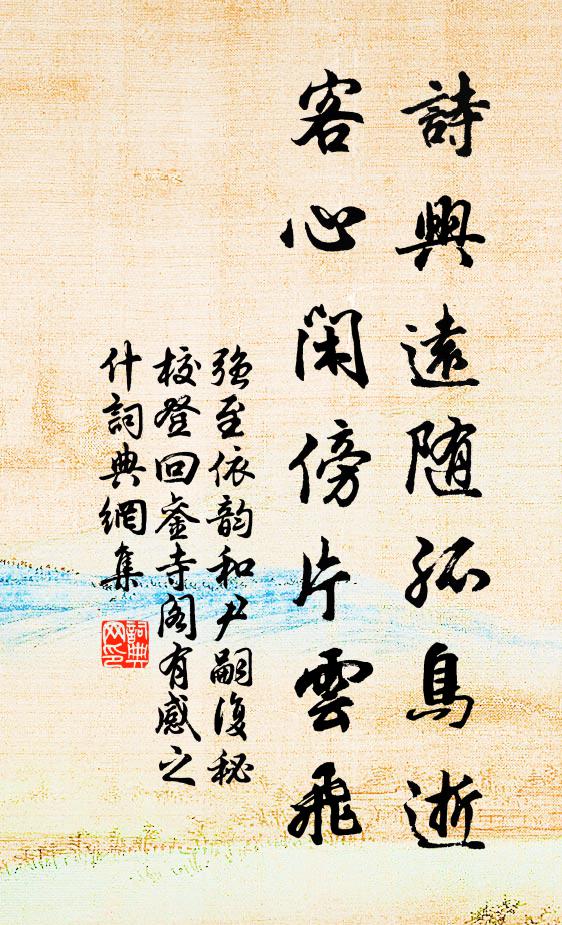 詩興遠随孤鳥逝
客心閑傍片雲飛
强至依韵和尹嗣復秘
校登回峯寺阁有感之
什詞典網集
詞典網印